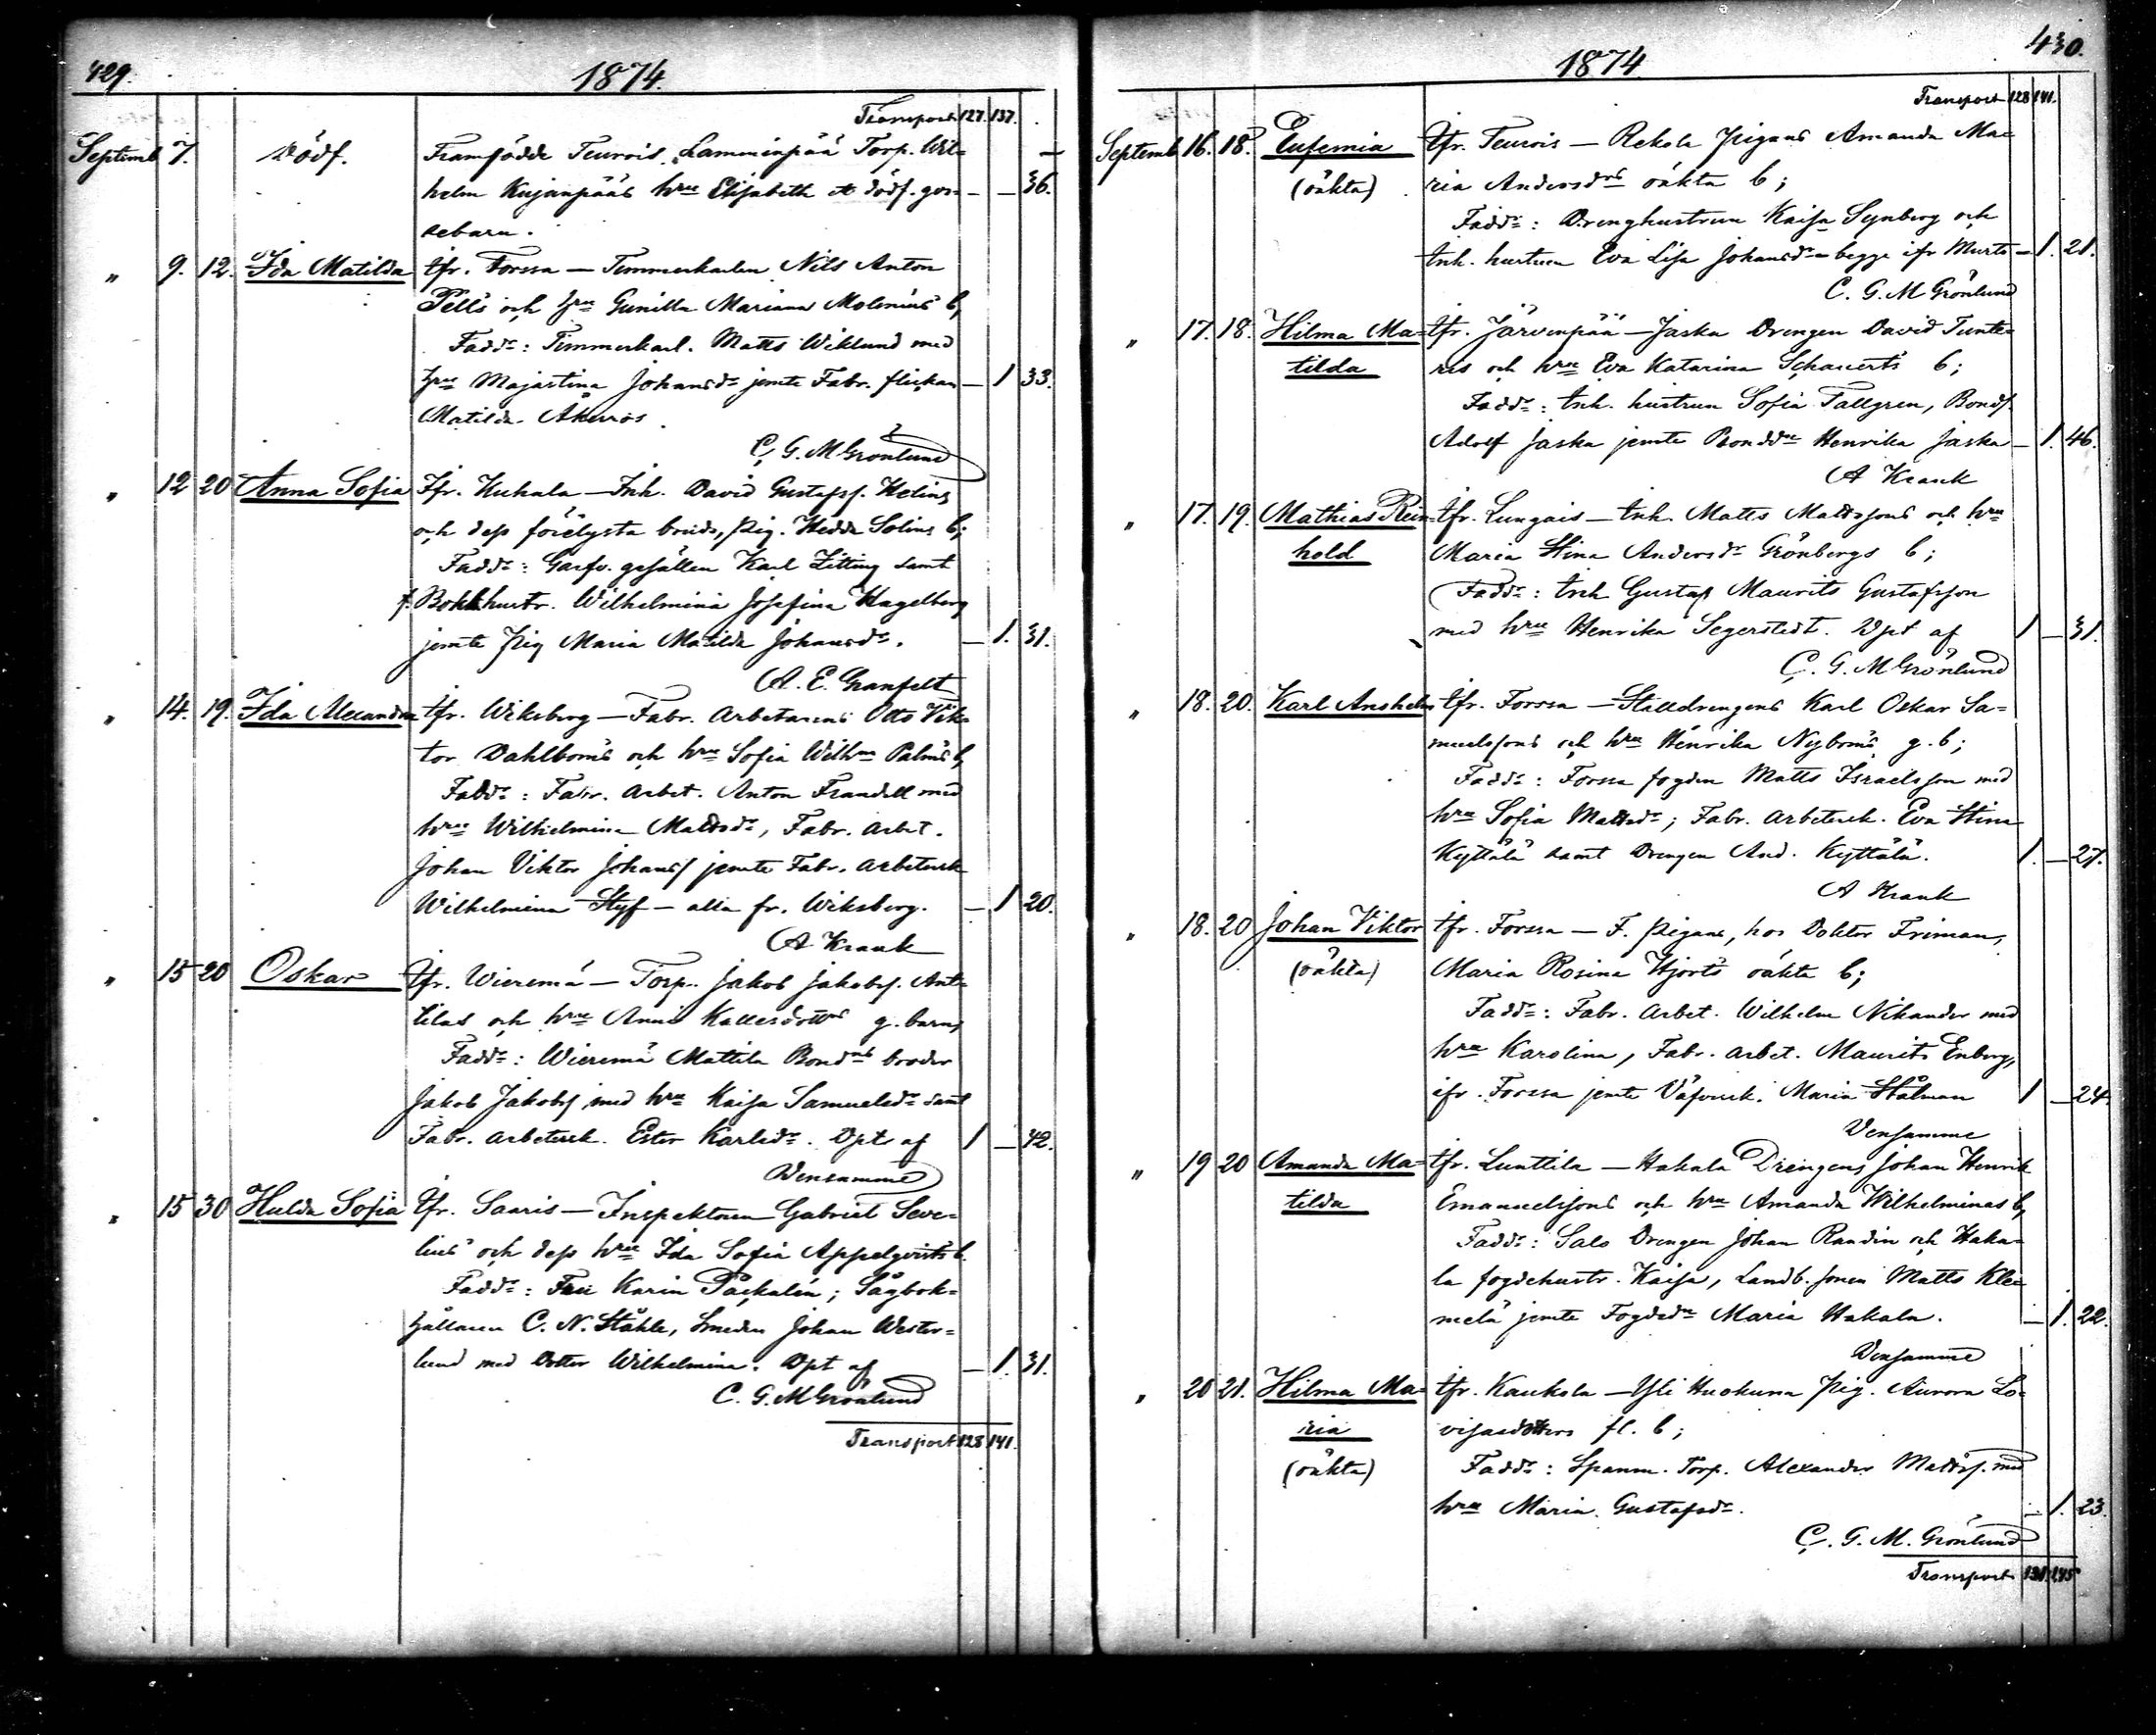 429.
1874.
Transport 127. 137.
Septemb 7. Dödf. Framfödde Teurois Lamminpää Torp. Wil=
helm Kujanpääs hru Elisabeth ett dödf. gos= — — 36.
sebarn.
" 9. 12. Ida Matilda tfr. Forssa — Timmerkarlen Nils Anton
Pells och hru Gunilla Mariana Molenius b,
Fadd: Timmerkarl. Matts Wiklund med
hru Majastina Johansdr jemte Fabr. flickan — 1 33.
Matilda Åkerros
C. G. M Grönlund
" 12 20 Anna Sofia Ifr. Kuhala — Inh. David Gustafss. Helins
och dess förelysta brud, pig. Hedda Solins b;
Fadd: Garfv. gesällen Karl Zitting samt
f. Bokh hustr. Wilhelmina Josefina Hagelberg
jemte pig Maria Matilda Johansdr. — 1. 31.
A. E. Granfelt
" 14. 19. Ida Alexandra tfr. Wiksberg — Fabr. Arbetarens Otto Vik=
tor Dahlboms och hru Sofia Wilhna Palms b,
Fadd: Fabr. Arbet. Anton Frandell med
hru Wilhelmina Mattsdr, Fabr. Arbet.
Johan Viktor Johanss jemte Fabr. arbetersk
Wilhelmina Styf — alla fr. Wiksberg. — 1 20.
A Krank
" 15 20 Oskar tfr. Wieremä — Torp. Jakob Jakobs. Ant=
tilas och hru Anna Kallesdottrs g. barn,
Fadd: Wieremä Mattila Bondns broder
Jakob Jakobs med hru Kaisa Samuelsdr samt
Fabr. arbetersk. Ester Karlsdr. Dpt af 1 — 42.
Densamme
" 15 30 Hulda Sofia tfr. Saaris — Inspektoren Gabriel Seve=
lius och dess hru Ida Sofia Appelqvists b.
Fadd: Fru Karin Paçkalén; Sågbok=
hållaren C. N. Ståhle, Smeden Johan Wester=
lund med dotter Wilhelmina. Dpt af — 1. 31.
C. G. M Grönlund
Transport 128 141.
430.
1874
Transport 128 141.
Septemb 16. 18. Eufemia tfr. Teurois — Rekola pigans Amanda Ma=
(oäkta) ria Andersdrs oäkta b;
Fadd: Drenghustrun Kaisa Synberg och
Inh. hustrun Eva Lisa Johansdr — begge ifr Murto — 1. 21.
C. G. M Grönlund
" 17. 18. Hilma Ma= tfr. Järvenpää — Jaska Drengen David Tunte=
tilda ris och hru Eva Katarina Schauerts b;
Fadd: Inh. hustrun Sofia Tallgren, Bonds.
Adolf Jaska jemte Bonddr Henrika Jaska — 1. 46.
A Krank
" 17. 19. Mathias Rein= tfr. Lungois — Inh. Matts Mattssons och hru
hold Maria Stina Andersdr Grönbergs b;
Fadd: Inh Gustaf Maurits Gustafsson
med hru Henrika Segerstedt. Dpt af 1 — 31.
C. G. M Grönlund
" 18. 20. Karl Anshelm tfr. Forssa — Stalldrengens Karl Oskar Sa=
muelssons och hru Henrika Nyboms g. b;
Fadd: Forssa fogden Matts Israelsson med
hru Sofia Mattsdr; Fabr. Arbetersk. Eva Stina
Kyttälä samt Drengen And. Kyttälä. 1. — 27.
A Krank
" 18. 20 Johan Viktor tfr. Forssa — F. pigans, hos Doktor Friman,
(oäkta) Maria Rosina Hjorts oäkta b;
Fadd: Fabr. Arbet. Wilhelm Nikander med
hru Karolina, Fabr. Arbet. Maurits Enberg,
ifr. Forssa jemte Väfversk. Maria Stålman 1 — 24.
Densamme
" 19 20 Amanda Ma= tfr. Lunttila — Hakala Drengens Johan Henrik
tilda Emanuelssons och hru Amanda Wilhelminas b,
Fadd: Salo Drengen Johan Randin och Haka=
la fogdehustr. Kaisa, Landb. sonen Matts Kle=
melä jemte Fogdedr Maria Hakala. — 1. 22.
Densamme
" 20 21. Hilma Ma= tfr. Kaukola — Yli Huokuna pig. Aurora Lo=
ria visasdotters fl. b;
(oäkta) Fadd: Spanm. Torp. Alexander Mattss. med
hru Maria Gustafsdr. — 1. 23.
C. G. M. Grönlund
Transport 131. 145